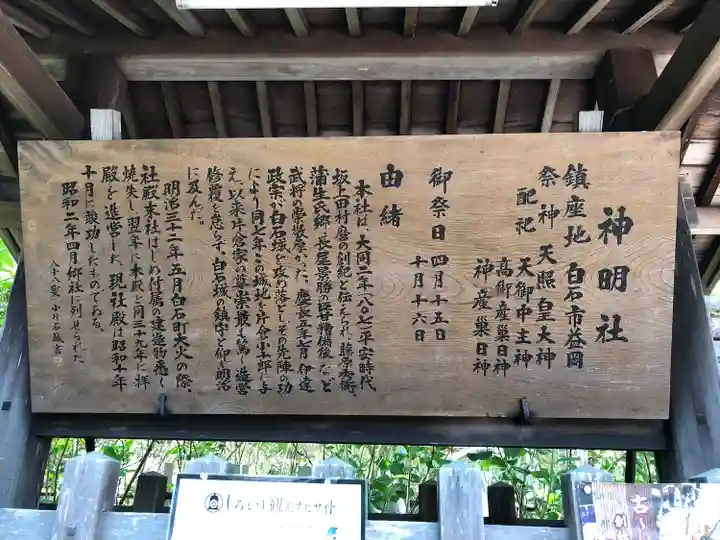 神明社
鎮座地 白石市益岡
祭神 天照皇大神
配祀 天御中主神
高御産巣日神
神産巣日神
御祭日 四月十五日
十月十六日
由緒
本社は、大同二年(八〇七)平安時代
坂上田村麿の創祀と伝えられ藤原秀衡、
蒲生氏郷・長尾景勝の臣甘糟備後など
武将の崇敬厚かった。慶長五年七月伊達
政宗が白石城を攻め落としその先陣の功
により同七年この城地を片倉小十郎に与
え、以来片倉家の尊崇最も篤く造営
修復を怠らず、白石城の鎮守と仰ぎ明治
に及んだ。
明治三十二年五月白石町大火の際、
社殿末社はじめ付属の建造物悉く
焼失し翌年に本殿を同三十九年に拝
殿を造営した。現社殿は昭和十年
十月に竣功したものである。
昭和二年四月郷社に列せられた
八十八叟
しろいし観光ナビサイト